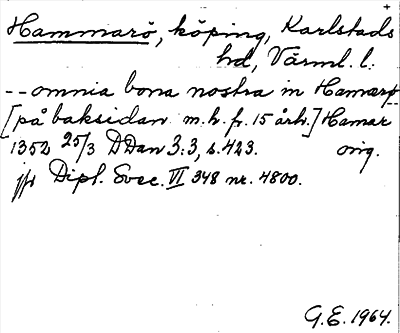 Hammarö, köping, Karlstads
hd, Värml. l.
-- omnia bona nostra in Hamarp--
[på baksidan m.h. fr. 15 årh.] Hamar
1352 25/3 DDan 3:3, s. 423. orig.
jfr Dipl. Svec. VI 348 nr. 4800.
G.E. 1964.